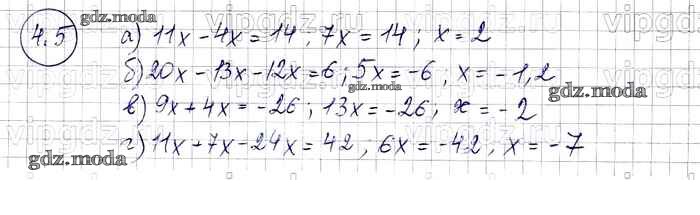 4.5 а) 11x - 4x = 14, 7x = 14; x = 2
б) 20x - 13x - 12x = 6; 5x = -6, x = -1,2
в) 9x + 4x = -26; 13x = -26, x = -2
г) 11x + 7x - 24x = 42; 6x = -42, x = -7
gdz.moda
gdz.moda
gdz.moda
gdz.moda
vipgdz.ru